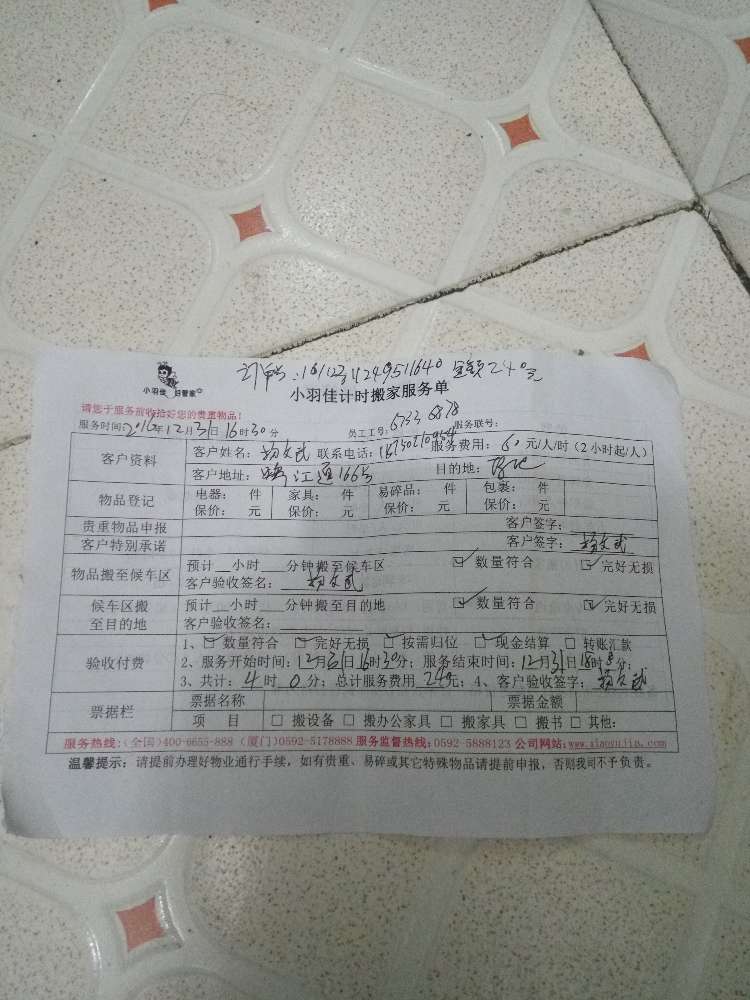 订单号:161231249511640 金额240元
小羽佳 好管家
小羽佳计时搬家服务单
请您于服务前收拾好您的贵重物品!
服务时间2016年12月31日16时30分 员工工号:6733 6878 服务联号:
客户资料 客户姓名:杨文武 联系电话: 服务费用:60元/人/时(2小时起/人)
客户地址: 江道166号 目的地:
物品登记 电器: 件 家具: 件 易碎品: 件 包裹: 件
保价: 元 保价: 元 保价: 元 保价: 元
贵重物品申报 客户签字:
客户特别承诺 客户签字:杨文武
物品搬至候车区 预计__小时___分钟搬至候车区 ☑数量符合 ☑完好无损
客户验收签名:杨文武
候车区搬至目的地 预计__小时___分钟搬至目的地 ☑数量符合 ☑完好无损
客户验收签名:
验收付费 1、☑数量符合 ☑完好无损 ☑按需归位 ☑现金结算 □转账汇款
2、服务开始时间:12月31日16时30分;服务结束时间:12月31日18时 分;
3、共计:4时0分;总计服务费用240元;4、客户验收签字:杨文武
票据栏 票据名称 票据金额
项 目 □搬设备 □搬办公家具 □搬家具 □搬书 □其他:
服务热线:(全国)400-6655-888 (厦门)0592-5178888 服务监督热线:0592-5888123 公司网站:www.xiaoyujia.com
温馨提示:请提前办理好物业通行手续,如有贵重、易碎或其它特殊物品请提前申报,否则我司不予负责。